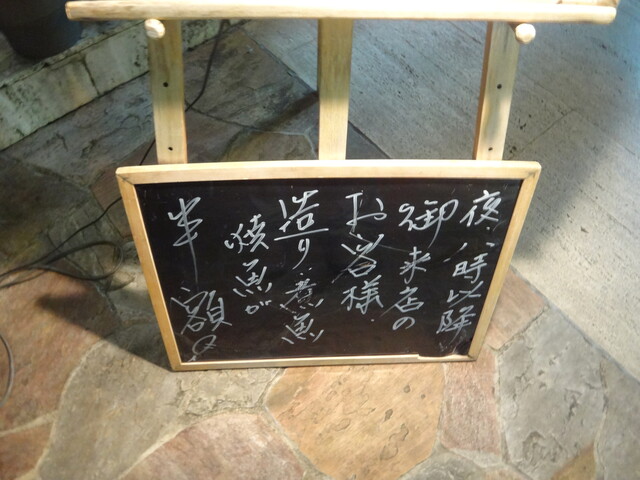 夜八時以降
御来店の
お客様
造り・煮魚
焼魚が
半額